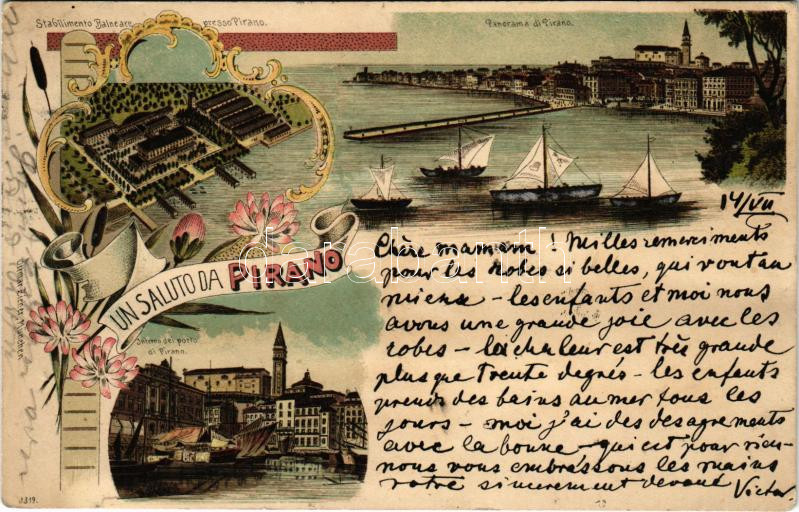 Stabilimento Balneare presso Pirano.
Panorama di Pirano.
UN SALUTO DA PIRANO
Interno del porto
di Pirano.
1319.
darabanth
14/VII
Chère maman ! Milles remerciments
pour les robes si belles, qui vont au
mienx - les enfants et moi nous
avous une grande joie avec les
robes - la chaleur est très grande
plus que trente degrés - les enfants
prends des bains au mer tous les
jours - moi j'ai des desagrements
avec la bonne - qui est pour rien -
nous vous embrassons les mains
votre sincerement devoué Victor.